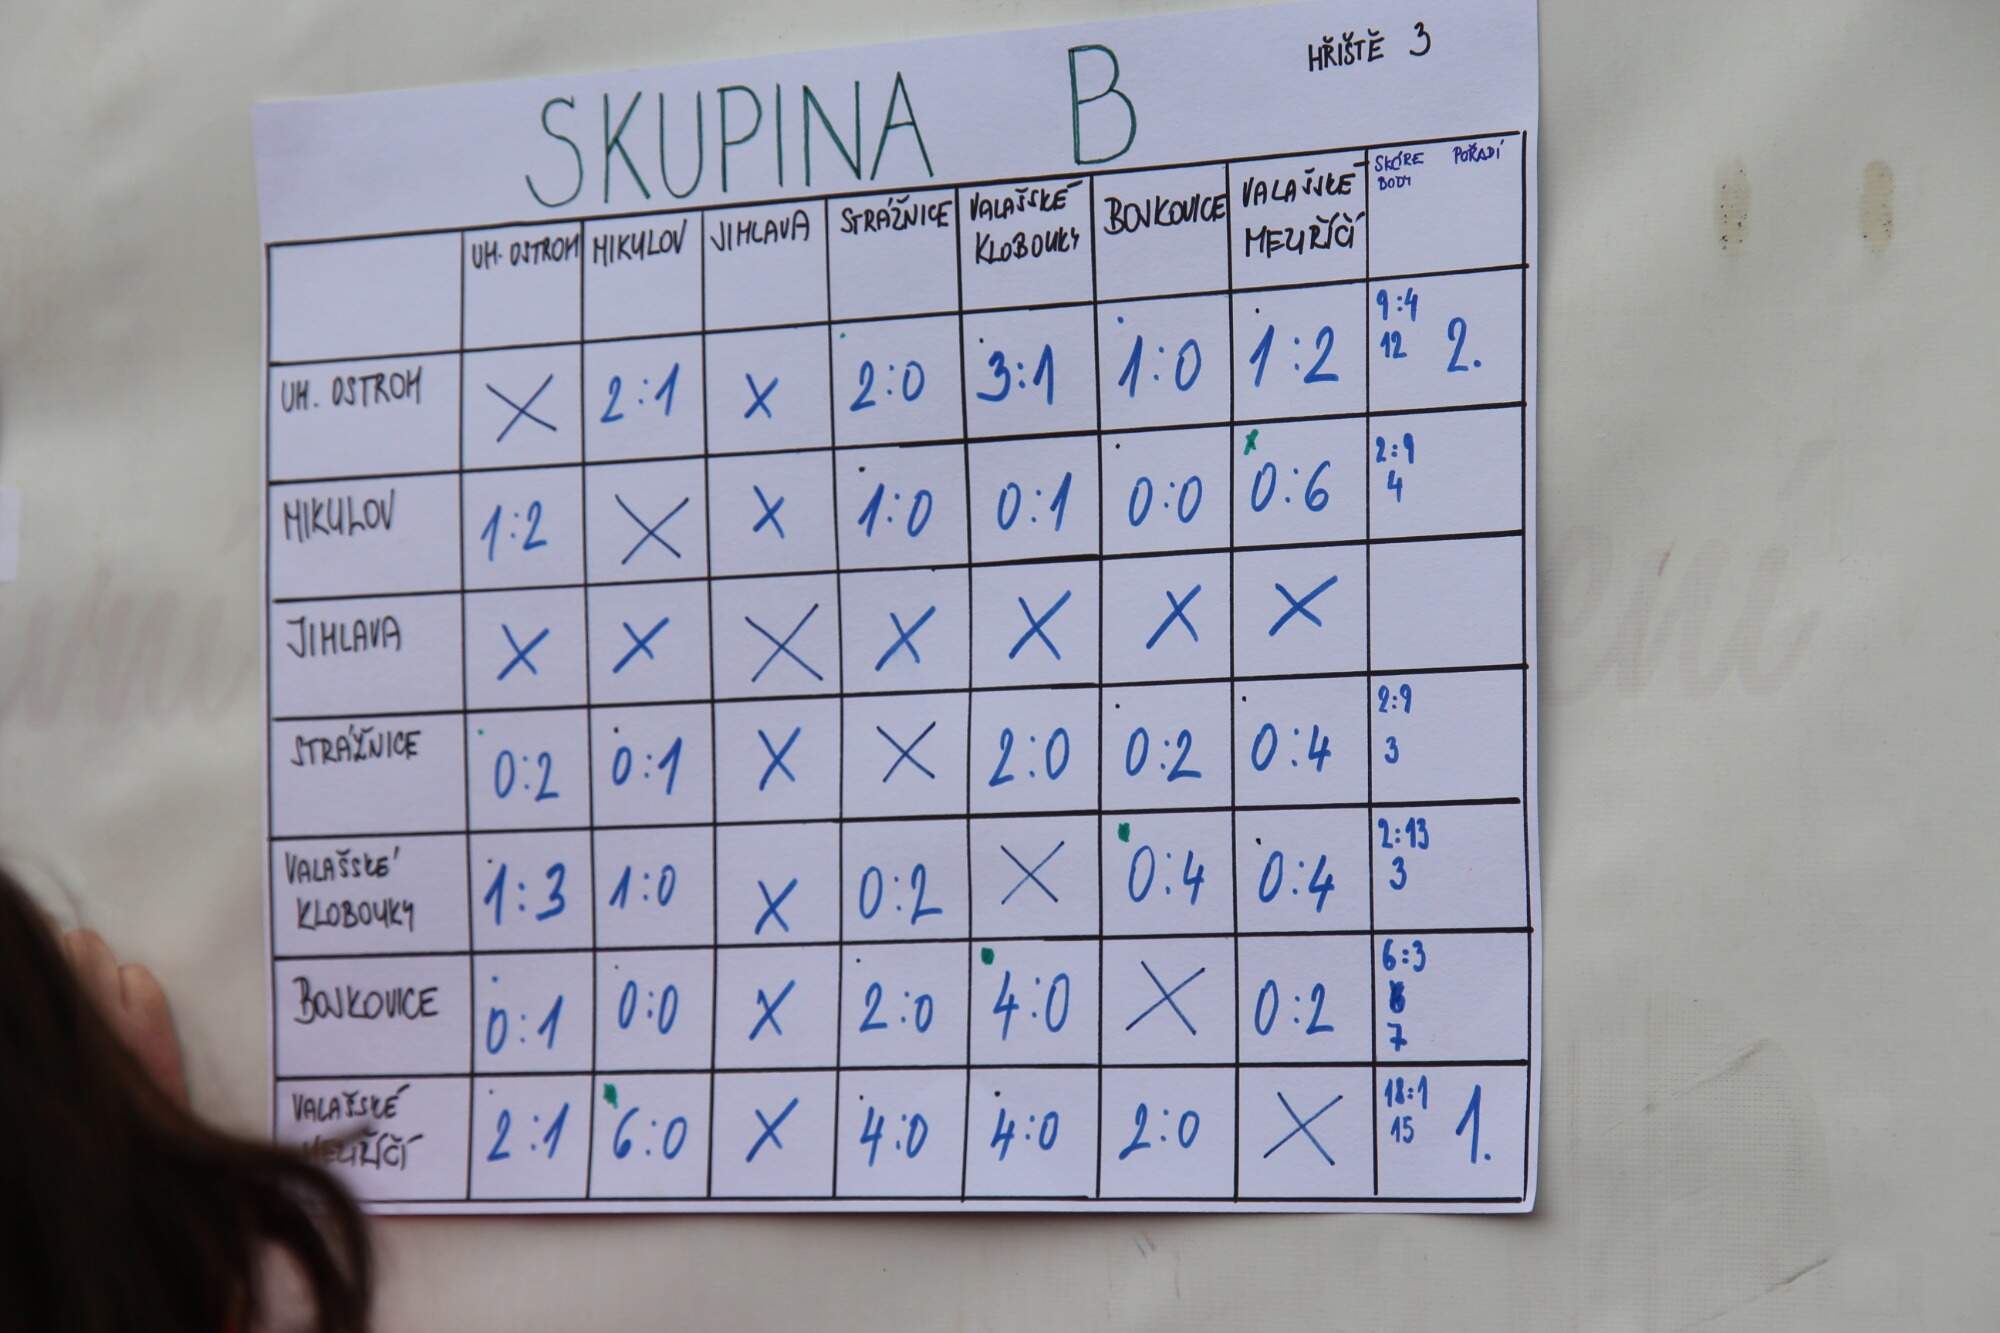 SKUPINA B
HŘIŠTĚ 3
UH. OSTROH MIKULOV JIHLAVA STRÁŽNICE VALAŠSKÉ KLOBOUKY BOJKOVICE VALAŠSKÉ MEZIŘÍČÍ SKÓRE BODY POŘADÍ
UH. OSTROH X 2:1 X 2:0 3:1 1:0 1:2 9:4 12 2.
MIKULOV 1:2 X X 1:0 0:1 0:0 0:6 2:9 4
JIHLAVA X X X X X X X
STRÁŽNICE 0:2 0:1 X X 2:0 0:2 0:4 2:9 3
VALAŠSKÉ KLOBOUKY 1:3 1:0 X 0:2 X 0:4 0:4 2:13 3
BOJKOVICE 0:1 0:0 X 2:0 4:0 X 0:2 6:3 7
VALAŠSKÉ MEZIŘÍČÍ 2:1 6:0 X 4:0 4:0 2:0 X 18:1 15 1.